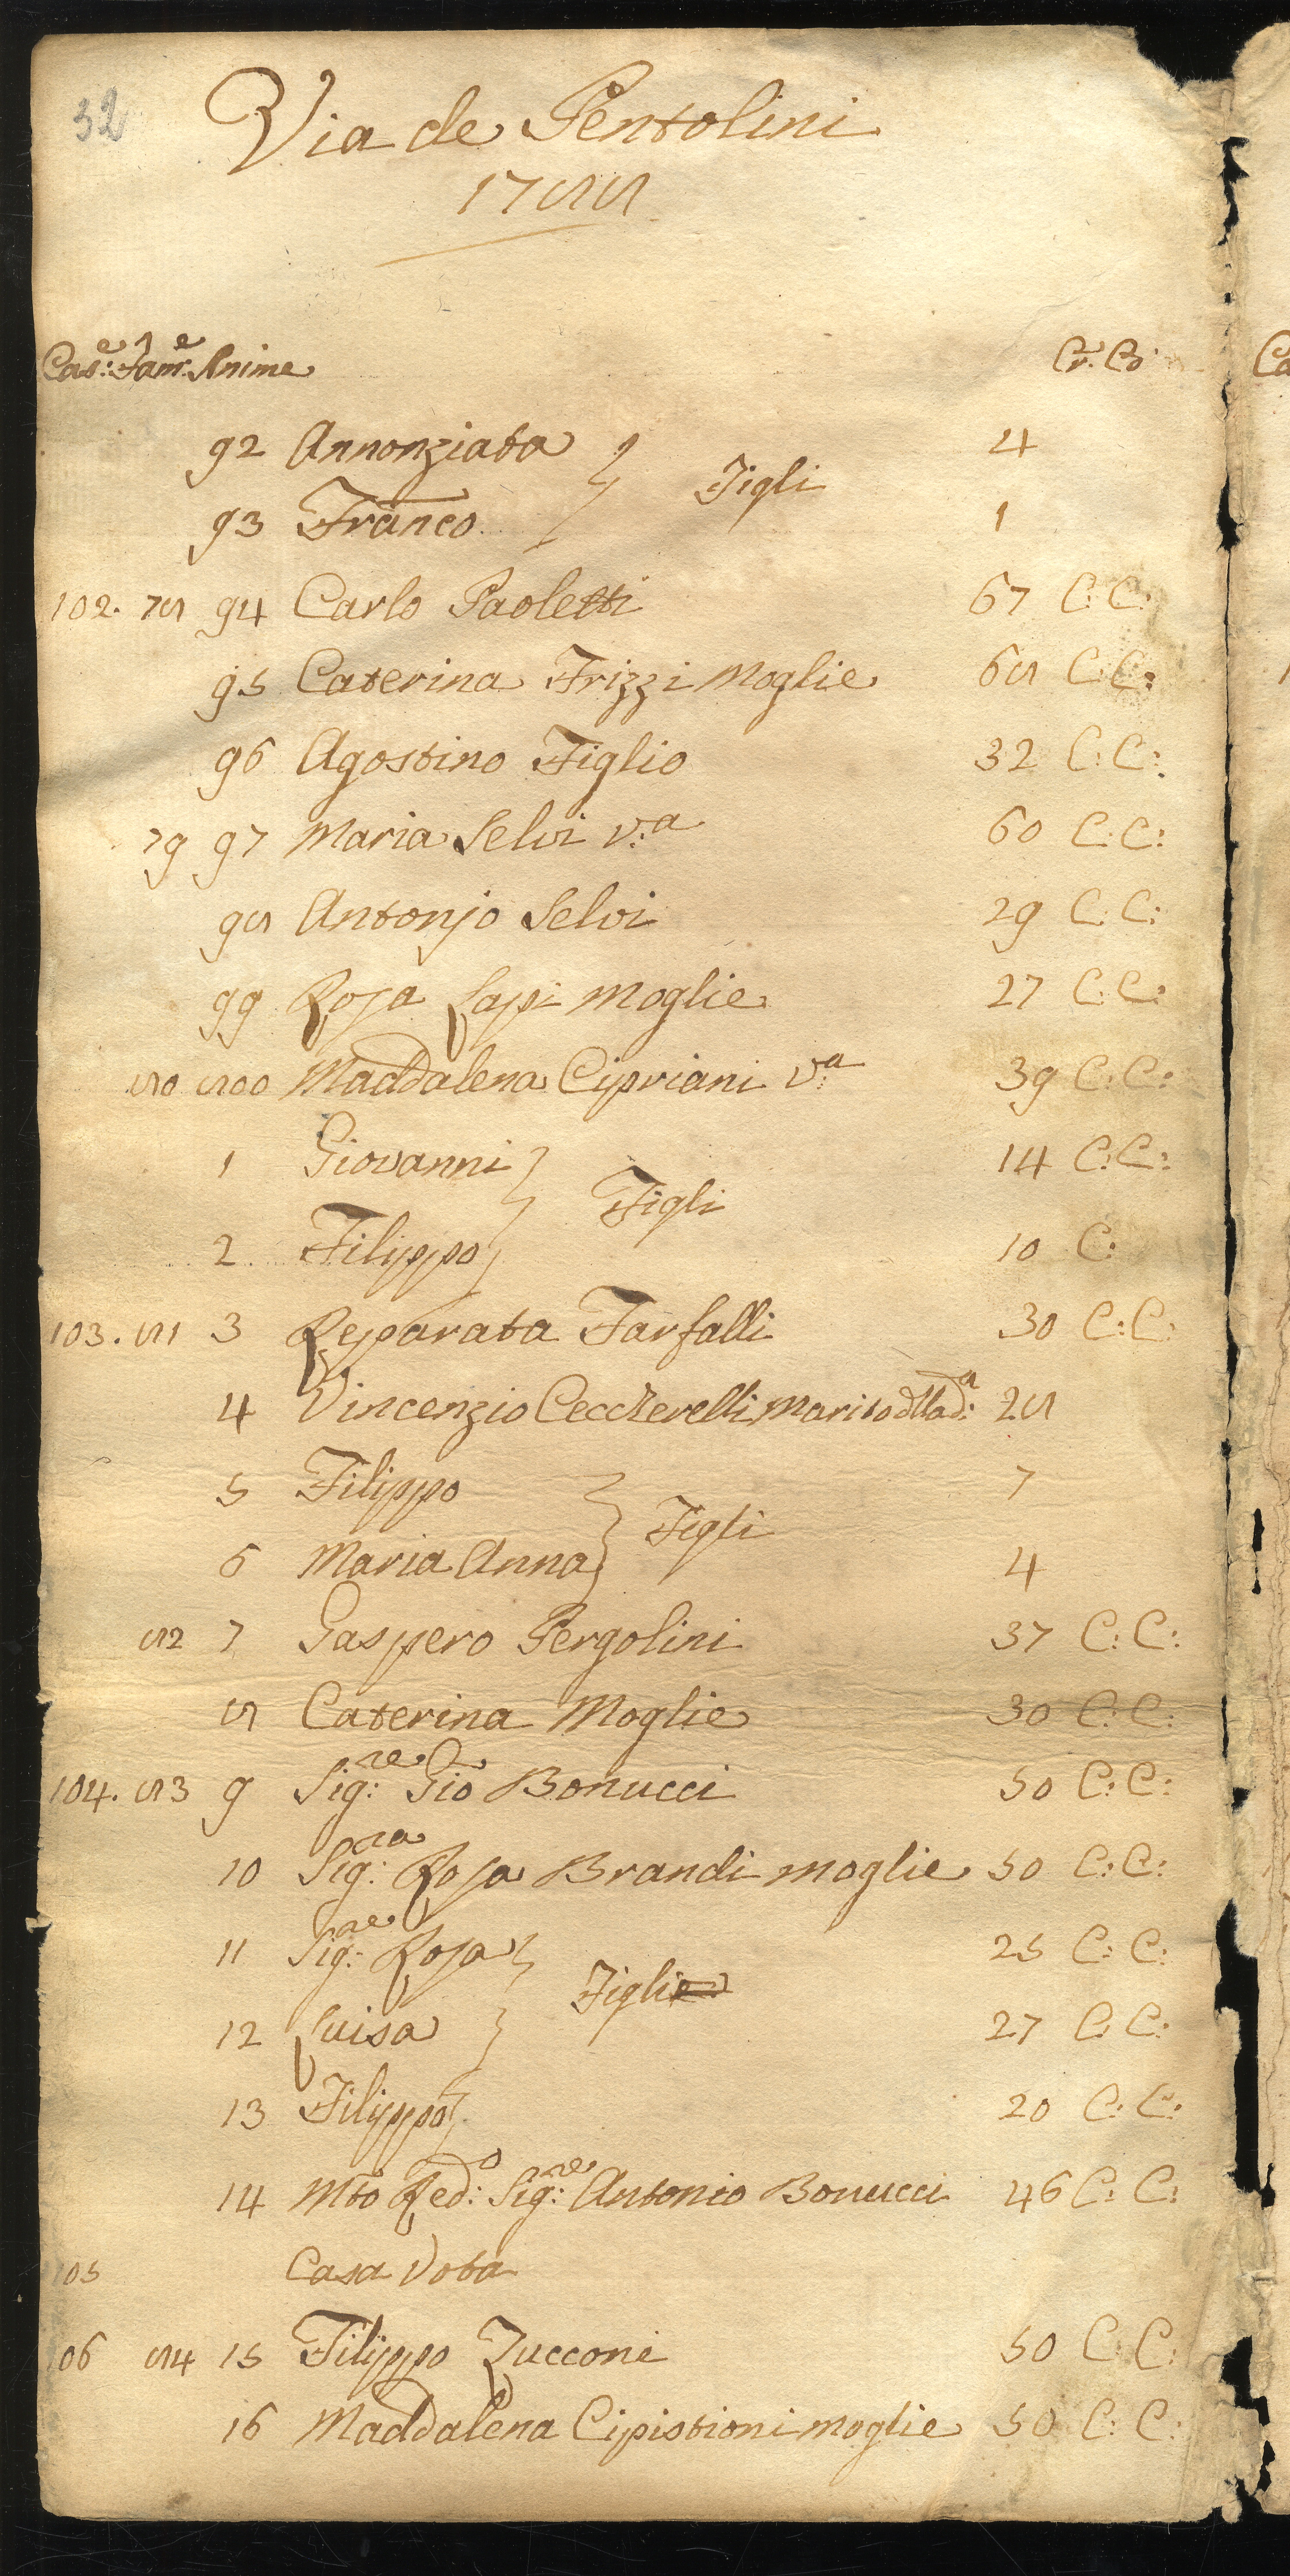 32
Via de Pentolini
1788
Cas:e Fam:e Anime Cr. Co
92 Annonziata 4
Figli
93 Franco 1
102. 78 94 Carlo Paoletti 67 C: C:
95 Caterina Frizzi Moglie 68 C: C:
96 Agostino Figlio 32 C: C:
79 97 Maria Selvi v:a 60 C: C:
98 Antonjo Selvi 29 C: C:
99 Rosa Lapi Moglie 27 C: C:
80 800 Maddalena Cipriani v:a 39 C: C:
1 Giovanni 14 C: C:
Figli
2 Filippo 10 C:
103. 81 3 Reparata Farfalli 30 C: C:
4 Vincenzio Ceccherelli Marito dllad:a 28
5 Filippo 7
Figli
6 Maria Anna 4
82 7 Gaspero Pergolini 37 C: C:
8 Caterina Moglie 30 C: C:
104. 83 9 Sig:re Gio Bonucci 50 C: C:
10 Sig:ra Rosa Brandi moglie 50 C: C:
11 Sig:re Rosa 25 C: C:
Figli
12 Luisa 27 C: C:
13 Filippo 20 C: C:
14 Mto Red:o Sig:re Antonio Bonucci 46 C: C:
105 Casa Vota
106 84 15 Filippo Zucconi 50 C: C:
16 Maddalena Cipistioni moglie 50 C: C: